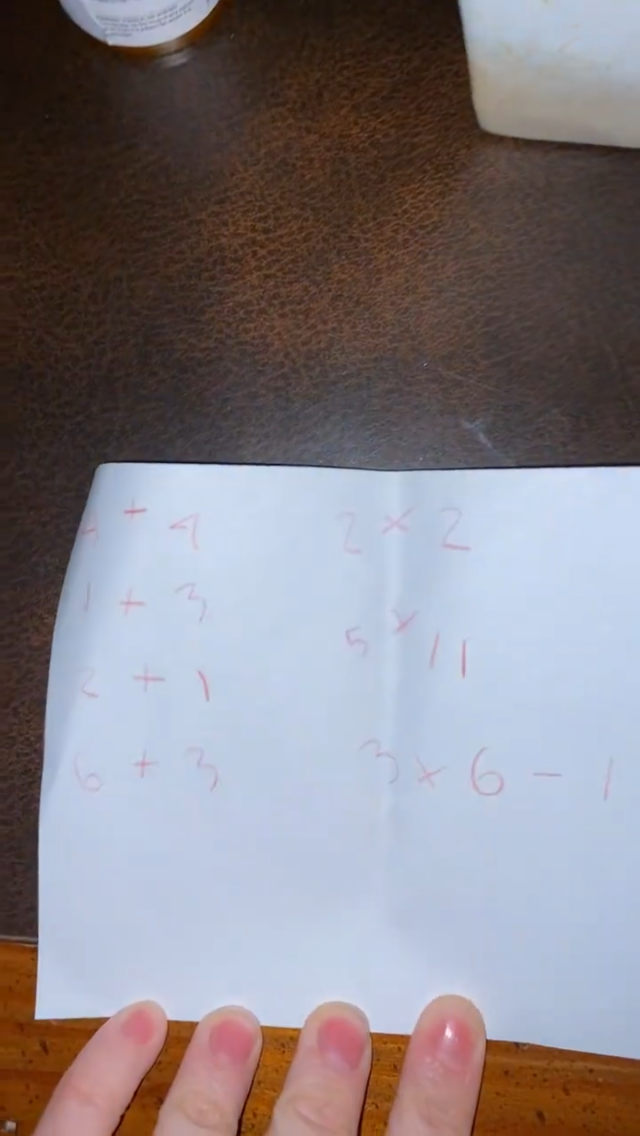 4 + 4
1 + 3
2 + 1
6 + 3
2 × 2
5 × 11
3 × 6 - 1